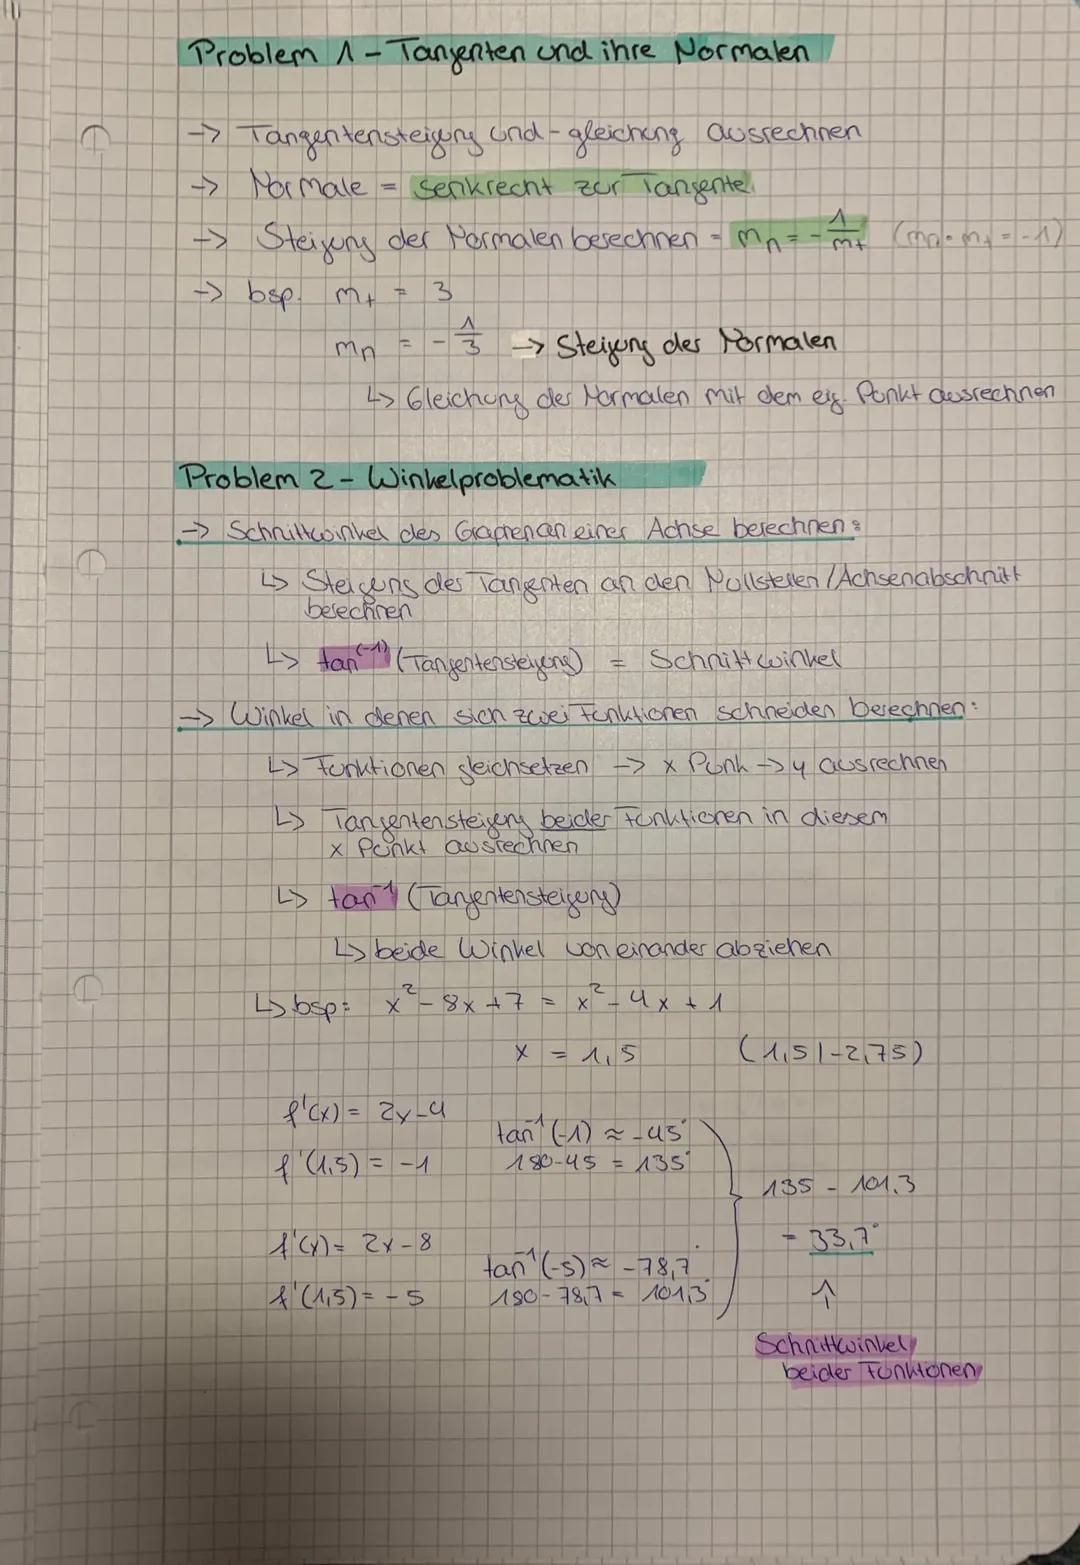 Problem 1 - Tangenten und ihre Normalen
-> Tangentensteigung und -gleichung ausrechnen
-> Normale = senkrecht zur Tangente
-> Steigung der Normalen berechnen = mn = - 1/mt (mn · mt = -1)
-> bsp. mt = 3
mn = - 1/3 -> Steigung der Normalen
↳ Gleichung der Normalen mit dem eig. Punkt ausrechnen
Problem 2 - Winkelproblematik
-> Schnittwinkel des Graphen an einer Achse berechnen:
↳ Steigung der Tangenten an den Nullstellen / Achsenabschnitt
berechnen
↳ tan⁽⁻¹⁾ (Tangentensteigung) = Schnittwinkel
-> Winkel in denen sich zwei Funktionen schneiden berechnen:
↳ Funktionen gleichsetzen -> x Punk -> y ausrechnen
↳ Tangentensteigung beider Funktionen in diesem
x Punkt ausrechnen
↳ tan⁻¹ (Tangentensteigung)
↳ beide Winkel voneinander abziehen
↳ bsp: x² - 8x + 7 = x² - 4x + 1
x = 1,5 (1,5 | -2,75)
f'(x) = 2x - 4
tan⁻¹ (-1) ≈ -45°
f'(1,5) = -1 180 - 45 = 135°
135 - 101,3
f'(x) = 2x - 8 = 33,7°
tan⁻¹ (-5) ≈ -78,7°
f'(1,5) = -5 180 - 78,7 = 101,3° ↑
Schnittwinkel
beider Funktionen